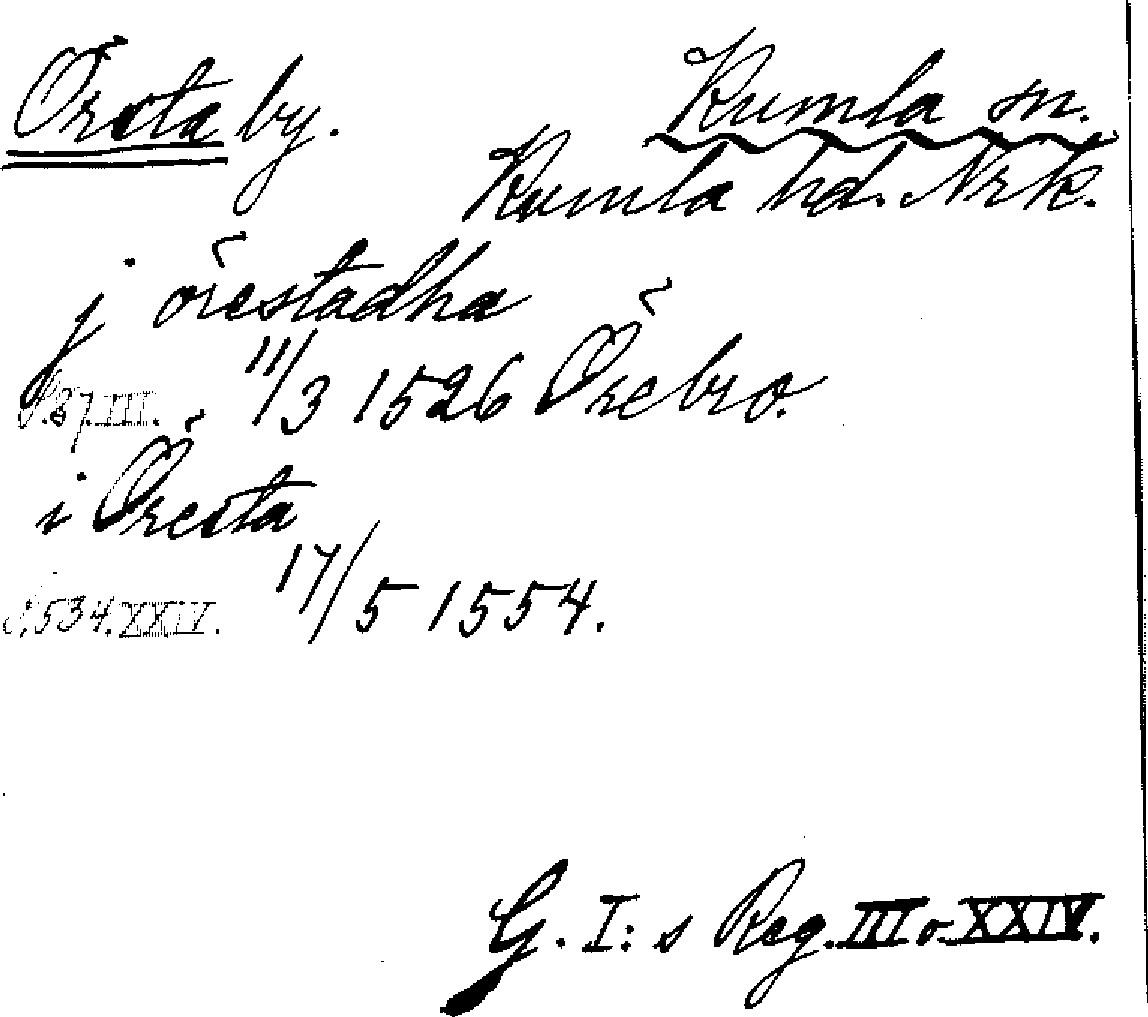 Örsta by. Kumla sn.
Kumla hd. Nrk.
j örestadha
S.37.III. 11/3 1526 Örebro.
i Öresta
S.534.XXIV. 17/5 1554.
G. I:s Reg. III o XXIV.